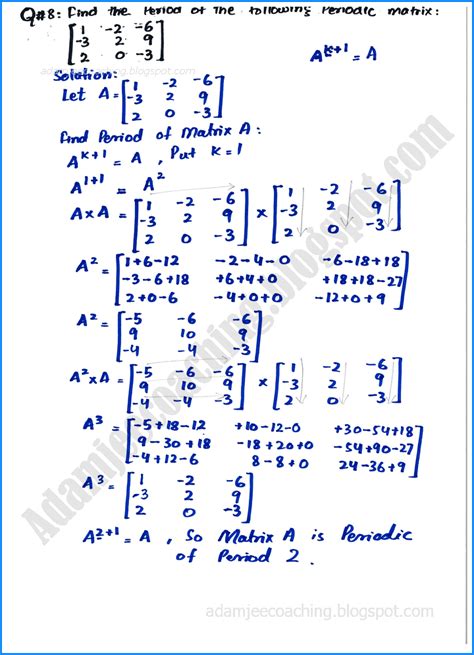 Q#8: Find the Period of the following Periodic matrix:
[1 -2 -6
-3 2 9
2 0 -3]
A^k+1 = A
adamjeecoaching.blogspot.com
Solution:
Let A = [1 -2 -6
-3 2 9
2 0 -3]
Find Period of Matrix A:
A^k+1 = A , Put K=1
A^1+1 = A^2
A×A = [1 -2 -6 × [1 -2 -6
-3 2 9 -3 2 9
2 0 -3] 2 0 -3]
A^2 = [1+6-12 -2-4-0 -6-18+18
-3-6+18 +6+4+0 +18+18-27
2+0-6 -4+0+0 -12+0+9]
A^2 = [-5 -6 -6
9 10 9
-4 -4 -3]
A^2×A = [-5 -6 -6 × [1 -2 -6
9 10 9 -3 2 9
-4 -4 -3] 2 0 -3]
A^3 = [-5+18-12 +10-12-0 +30-54+18
9-30+18 -18+20+0 -54+90-27
-4+12-6 8-8+0 24-36+9]
A^3 = [1 -2 -6
-3 2 9
2 0 -3]
A^2+1 = A , So Matrix A is Periodic
of Period 2.
Adamjeecoaching.blogspot.com
adamjeecoaching.blogspot.com